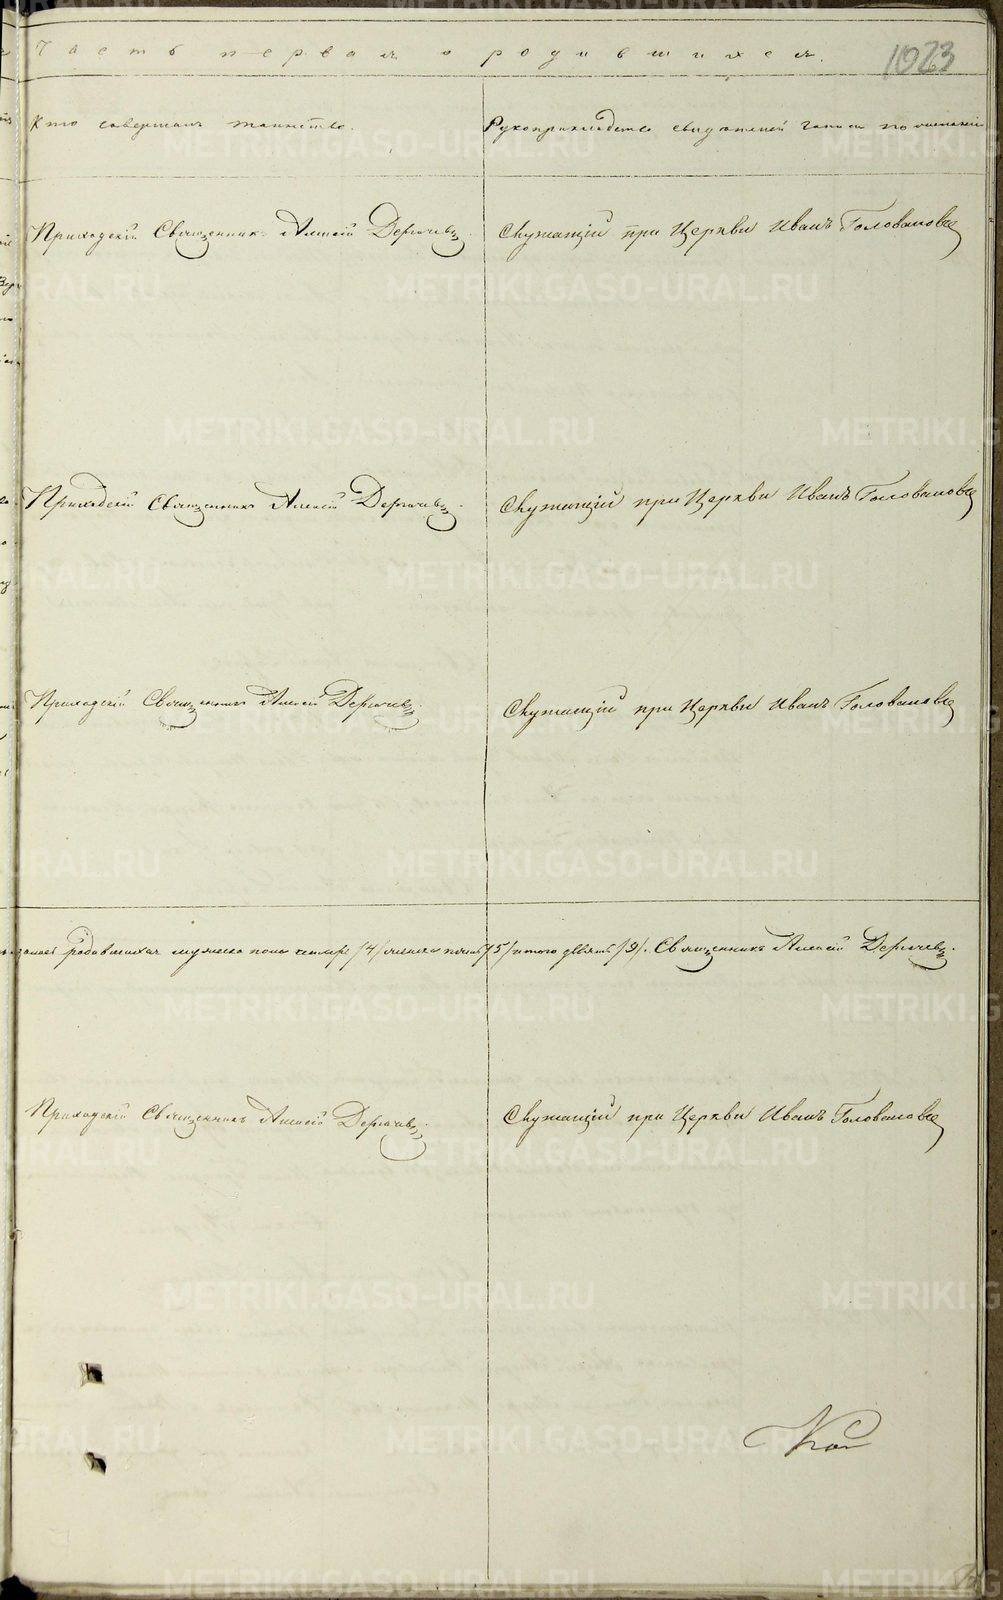 Часть первая о родившихся.
1023
Кто совершалъ таинство.
Рукоприкладство свидѣтелей записи по желанію
Приходскій Священникъ Алексій Дергачевъ
Служащій при Церкви Иванъ Головановъ
Приходскій Священникъ Алексій Дергачевъ.
Служащій при Церкви Иванъ Головановъ
Приходскій Священникъ Алексій Дергачевъ.
Служащій при Церкви Иванъ Головановъ
родившихся мужеска пола четыре /4/ женска пять /5/ итого девять /9/. Священникъ Алексій Дергачевъ.
Приходскій Священникъ Алексій Дергачевъ.
Служащій при Церкви Иванъ Головановъ
METRIKI.GASO-URAL.RU